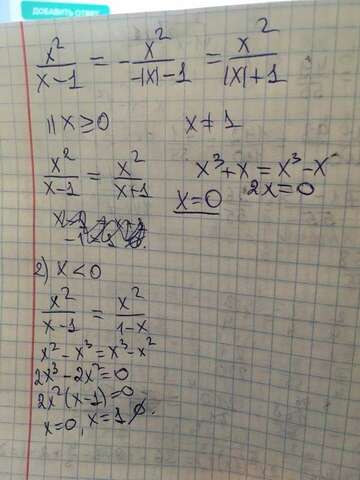 ДОБАВИТЬ ОТВЕТ
x²/(x-1) = -x²/(-|x|-1) = x²/(|x|+1)
1) x ≥ 0 x ≠ 1
x²/(x-1) = x²/(x+1) x³+x = x³-x
x=0 2x=0
2) x < 0
x²/(x-1) = x²/(1-x)
x²-x³=x³-x²
2x³-2x²=0
2x²(x-1)=0
x=0, x=1 ∅.